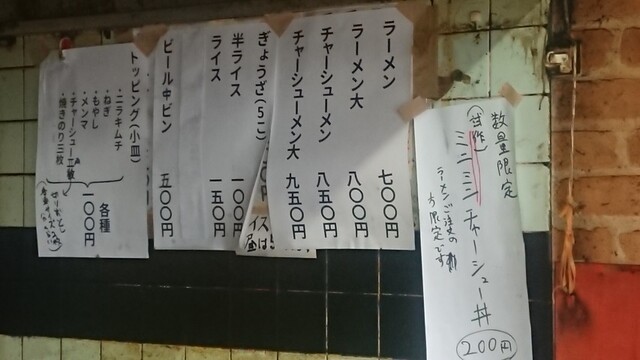 数量限定
(試作)
ミニミニチャーシュー丼
ラーメンご注文の方限定です
200円
ラーメン 七〇〇円
ラーメン大 八〇〇円
チャーシューメン 八五〇円
チャーシューメン大 九五〇円
ぎょうざ(5こ)
半ライス 一〇〇円
ライス 一五〇円
ビール中ビン 五〇〇円
トッピング(小皿)
・ニラキムチ
・ねぎ
・もやし
・メンマ
・チャーシュー二枚
・焼きのり三枚
各種
一〇〇円